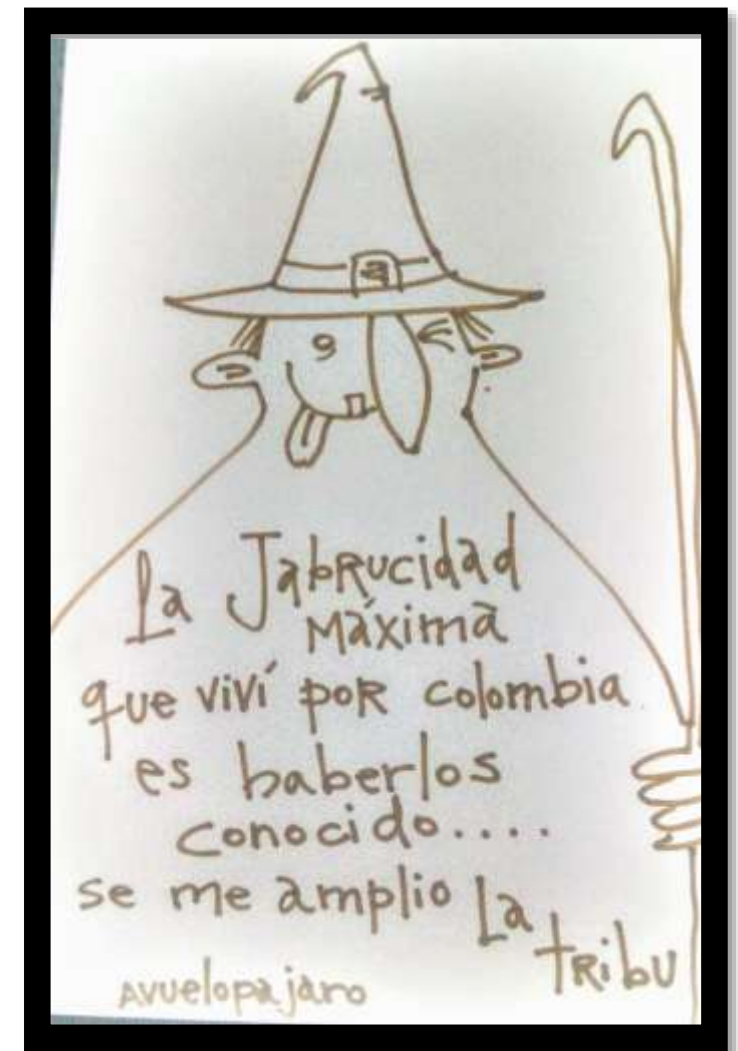 La Jabrucidad
Máxima
que viví por colombia
es haberlos
conocido....
se me amplio La
tribu
avuelopajaro